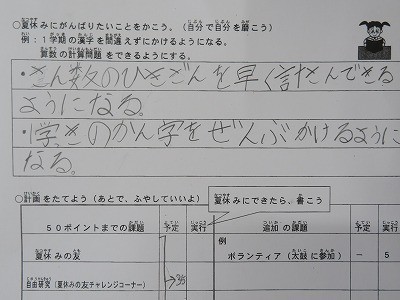 ○夏休みにがんばりたいことをかこう。(自分で自分を磨こう)
例:1学期の漢字を間違えずにかけるようになる。
算数の計算問題をできるようにする。
・さん数のひきざんを早く計さんできる
ようになる。
・1学きのかん字をぜんぶかけるように
なる。
○計画をたてよう(あとで、ふやしていいよ)
夏休みにできたら、書こう
50ポイントまでの課題 予定 実行 追加の課題 予定 実行
夏休みの友
例
ボランティア(太鼓に参加) - 5
自由研究(夏休みの友チャレンジコーナー)